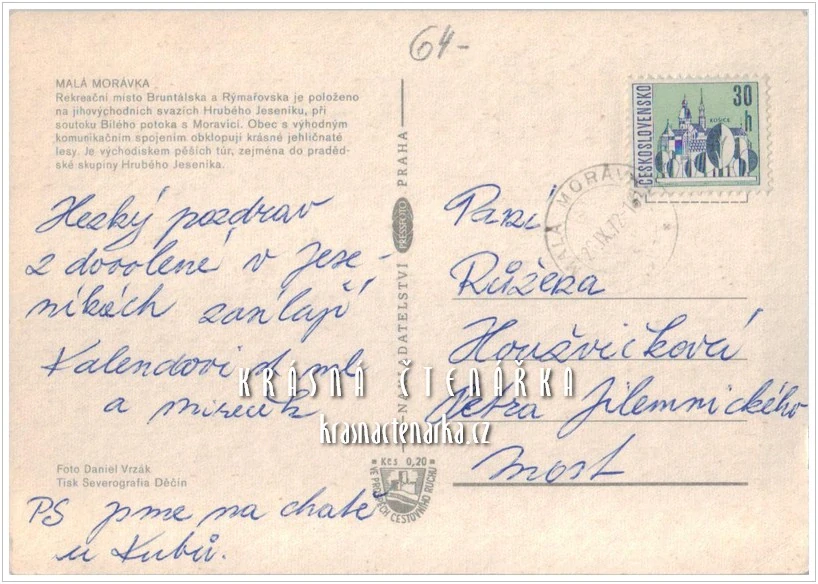 64-
MALÁ MORÁVKA
Rekreační místo Bruntálska a Rýmařovska je položeno
na jihovýchodních svazích Hrubého Jeseníku, při
soutoku Bílého potoka s Moravicí. Obec s výhodným
komunikačním spojením obklopují krásné jehličnaté
lesy. Je východiskem pěších túr, zejména do praděd-
ské skupiny Hrubého Jeseníka.
Hezký pozdrav
z dovolené v Jese-
níkách zasílají
Kalendovi st ml
a
Foto Daniel Vrzák
Tisk Severografia Děčín
PS jsme na chatě
u Kubů.
NAKLADATELSTVÍ PRESSFOTO PRAHA
Kčs 0,20
VE PROSPĚCH CESTOVNÍHO RUCHU
ČESKOSLOVENSKO
30 h
KOŠICE
MALÁ MORÁVK
IX.
Paní
Růžena
Horáčková
Petra Jilemnického
Most
KRÁSNÁ ČTENÁŘKA
krasnactenarka.cz